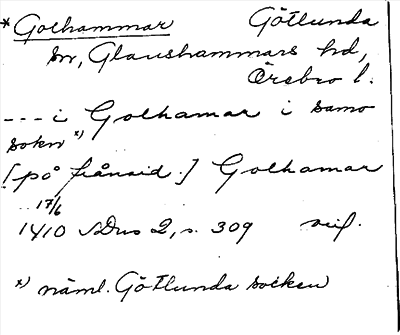 * Golhammar Götlunda
sn, Glanshammars hd,
Örebro l.
--- i Golhamar i samo
sokn x)
[på frånsid.] Golhamar
17/6
1410 SDns 2, s. 309
x) näml. Götlunda socken